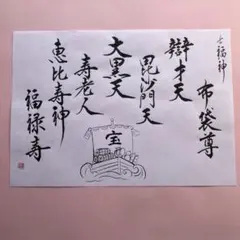 七福神
布袋尊
辯才天
毘沙門天
大黒天
寿老人
恵比寿神
福禄寿
宝